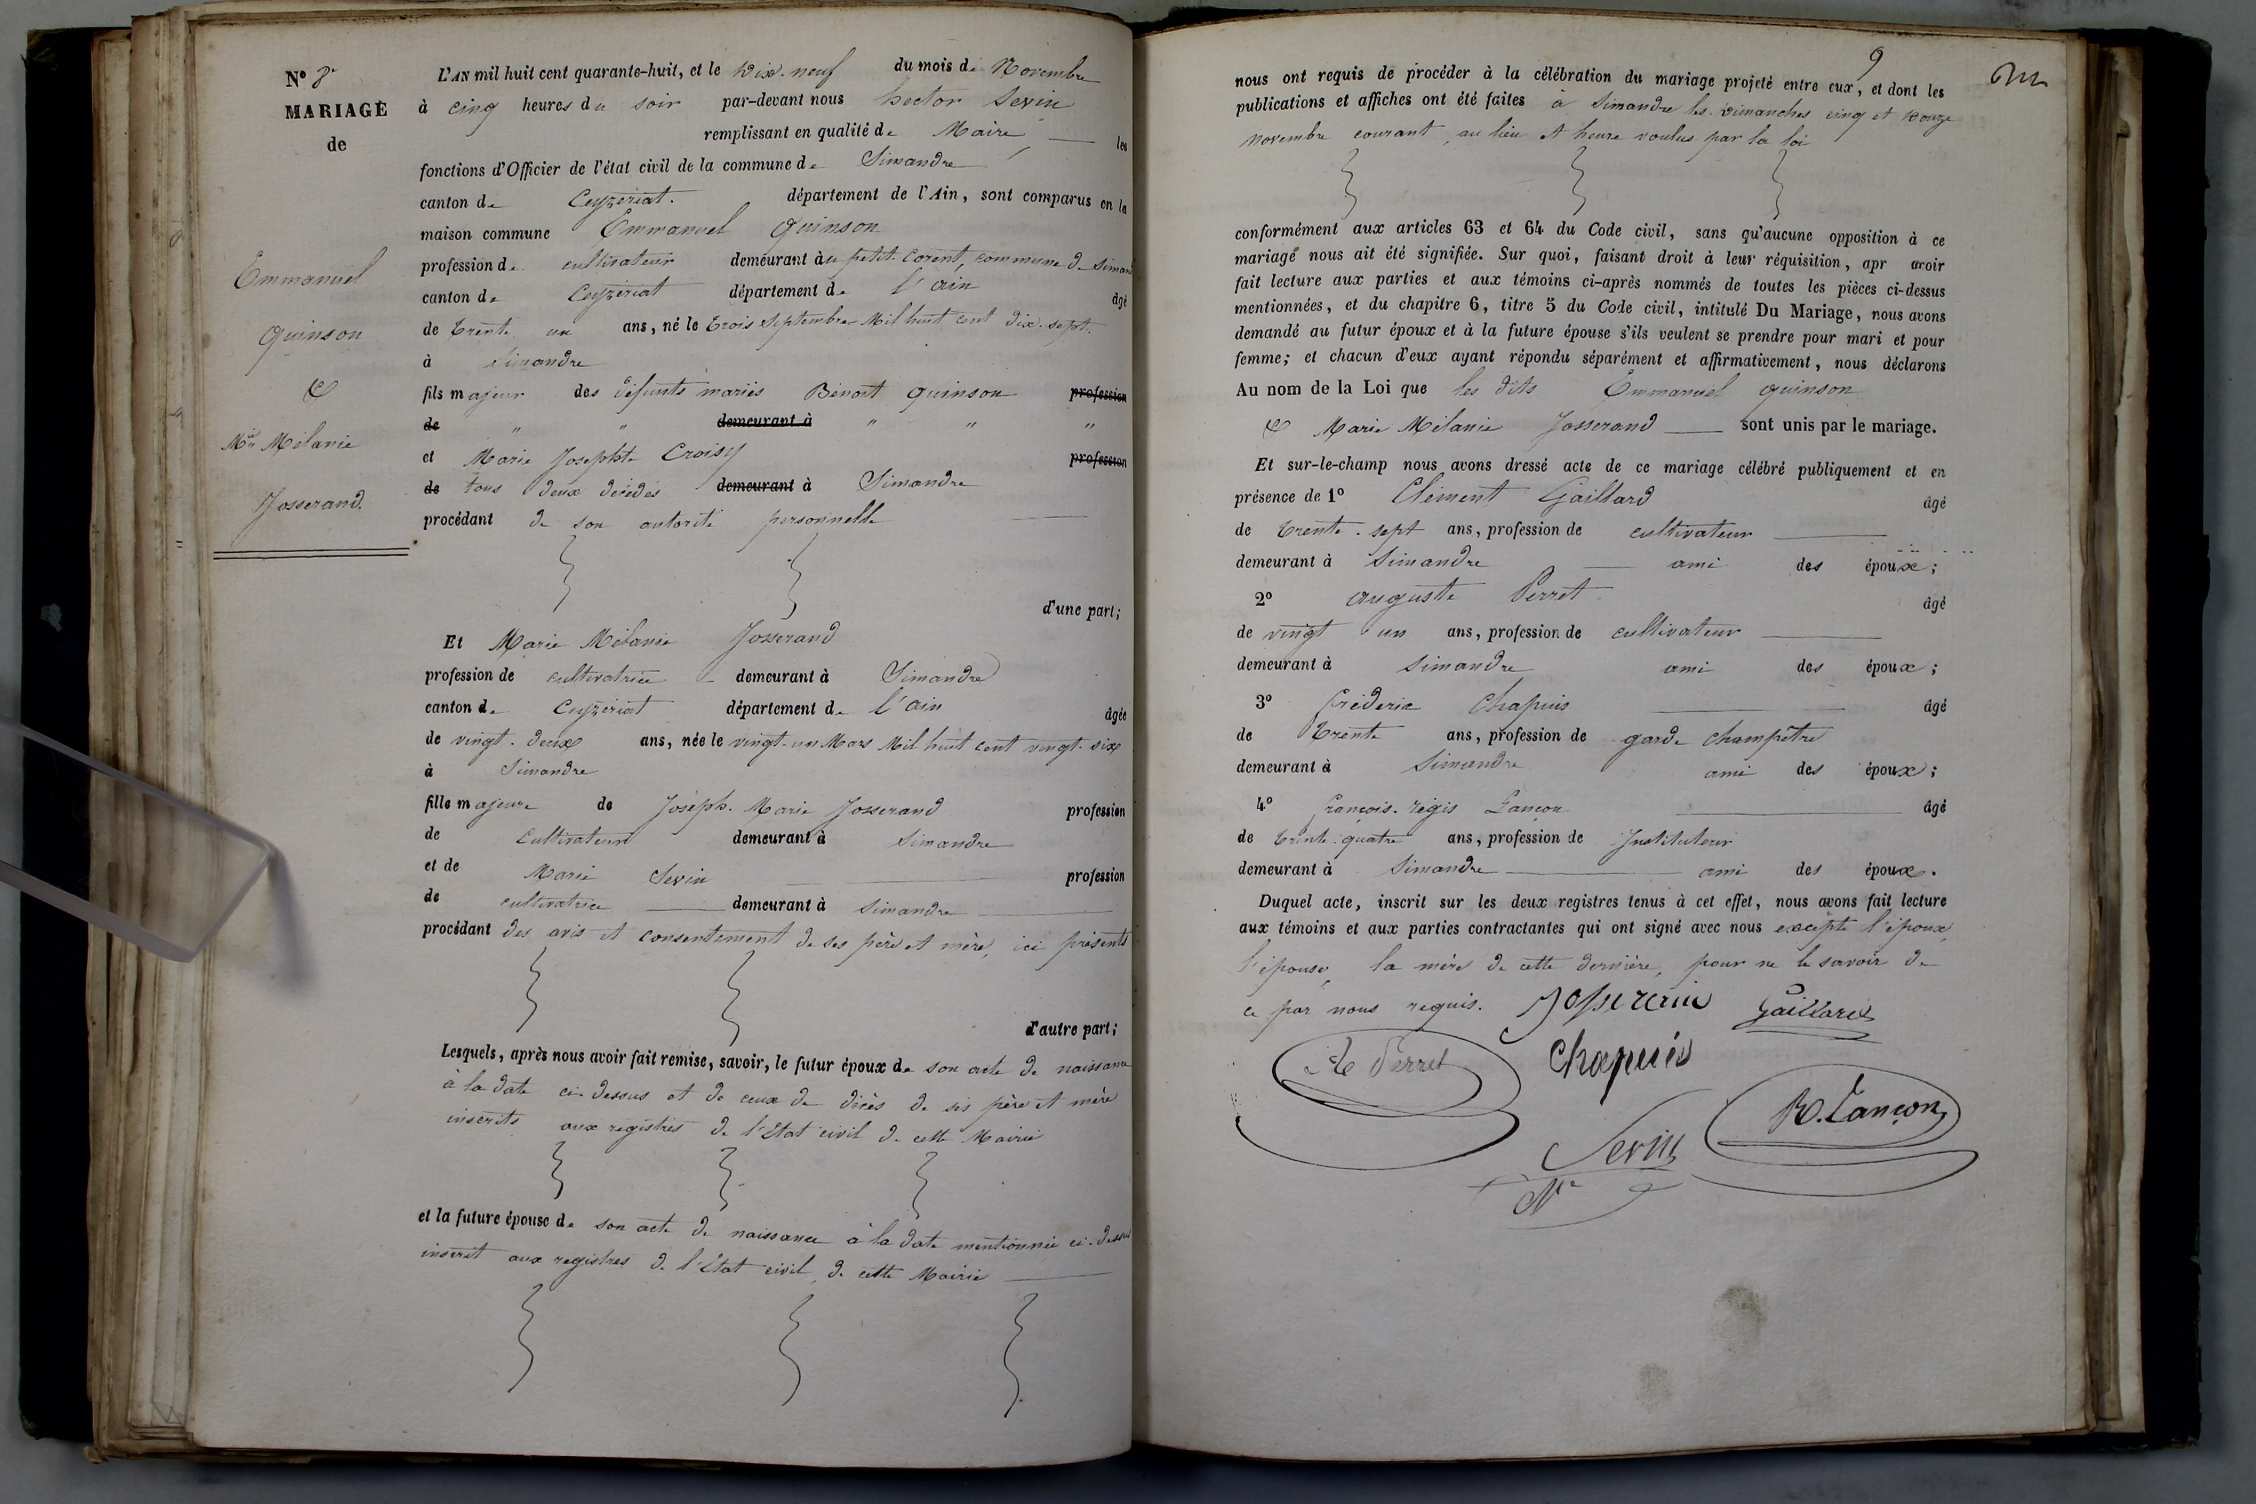 N° 8
MARIAGE
de
Emmanuel
quinson
&
Mie Mélanie
Josserand.
L'AN mil huit cent quarante-huit, et le dix-neuf du mois de Novembre
à cinq heures du soir par-devant nous hector Sevin
remplissant en qualité de Maire, les
fonctions d'Officier de l'état civil de la commune de Simandre
canton de Ceyzériat. département de l'Ain, sont comparus en la
maison commune Emmanuel quinson
profession de cultivateur demeurant au petit Corent, commune de Simand
canton de Ceyzériat département de l'ain âgé
de trente un ans, né le trois Septembre Mil huit cent dix-sept.
à Simandre
fils majeur des défunts mariés Benoit quinson profession
de " " demeurant à " " "
et Marie Josephte Croisy profession
de tous deux décédés demeurant à Simandre
procédant de son autorité personnelle
d'une part;
Et Marie Mélanie Josserand
profession de cultivatrice demeurant à Simandre
canton de Ceyzériat département de l'ain âgée
de vingt-deux ans, née le vingt-un Mars Mil huit cent vingt-six
à Simandre
fille majeure de Joseph-Marie Josserand profession
de Cultivateur demeurant à Simandre
et de Marie Sevin profession
de cultivatrice demeurant à Simandre
procédant des avis et consentement de ses père et mère, ici présents
d'autre part;
Lesquels, après nous avoir fait remise, savoir, le futur époux de son acte de naissance
à la date ci-dessus et de ceux de décès de ses père et mère
inscrits aux registres de l'état civil de cette Mairie
et la future épouse de son acte de naissance à la date mentionnée ci-dessus
inscrit aux registres de l'état civil de cette Mairie
9
nous ont requis de procéder à la célébration du mariage projeté entre eux, et dont les
publications et affiches ont été faites à Simandre les dimanches cinq et douze
novembre courant, au lieu et heure voulus par la loi
conformément aux articles 63 et 64 du Code civil, sans qu'aucune opposition à ce
mariage nous ait été signifiée. Sur quoi, faisant droit à leur réquisition, apr avoir
fait lecture aux parties et aux témoins ci-après nommés de toutes les pièces ci-dessus
mentionnées, et du chapitre 6, titre 5 du Code civil, intitulé Du Mariage, nous avons
demandé au futur époux et à la future épouse s'ils veulent se prendre pour mari et pour
femme; et chacun d'eux ayant répondu séparément et affirmativement, nous déclarons
Au nom de la Loi que les dits Emmanuel quinson
& Marie Mélanie Josserand sont unis par le mariage.
Et sur-le-champ nous avons dressé acte de ce mariage célébré publiquement et en
présence de 1° Clément Gaillard âgé
de trente-sept ans, profession de cultivateur
demeurant à Simandre ami des époux;
2° auguste Perret âgé
de vingt un ans, profession de cultivateur
demeurant à Simandre ami des époux;
3° fréderic Chapuis âgé
de trente ans, profession de garde champêtre
demeurant à Simandre ami des époux;
4° françois-régis Lançon âgé
de trente-quatre ans, profession de Instituteur
demeurant à Simandre ami des époux.
Duquel acte, inscrit sur les deux registres tenus à cet effet, nous avons fait lecture
aux témoins et aux parties contractantes qui ont signé avec nous excepté l'époux,
l'épouse, la mère de cette dernière, pour ne le savoir de
ce par nous requis. Josseran Gaillard
Perret Chapuis
R. Lançon
Sevin
Mre